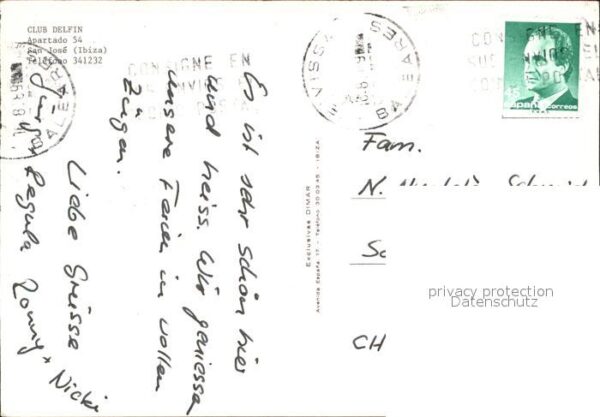 CLUB DELFIN
Apartado 54
San José (Ibiza)
Teléfono 341232
CONSIGNE EN
BALEARES
EVISSA
BALEARES
CONSIGNE EN
España correos
Es ist sehr schön hier
und heiss. Wir geniessen
unsere Ferien in vollen
Zügen.
Liebe Grüsse
Jürg
Regula
Ronny + Nicki
Exclusivas DIMAR
Avenida España, 17 - Teléfono 30 03 45 - IBIZA
Fam.
N.
CH
privacy protection
Datenschutz